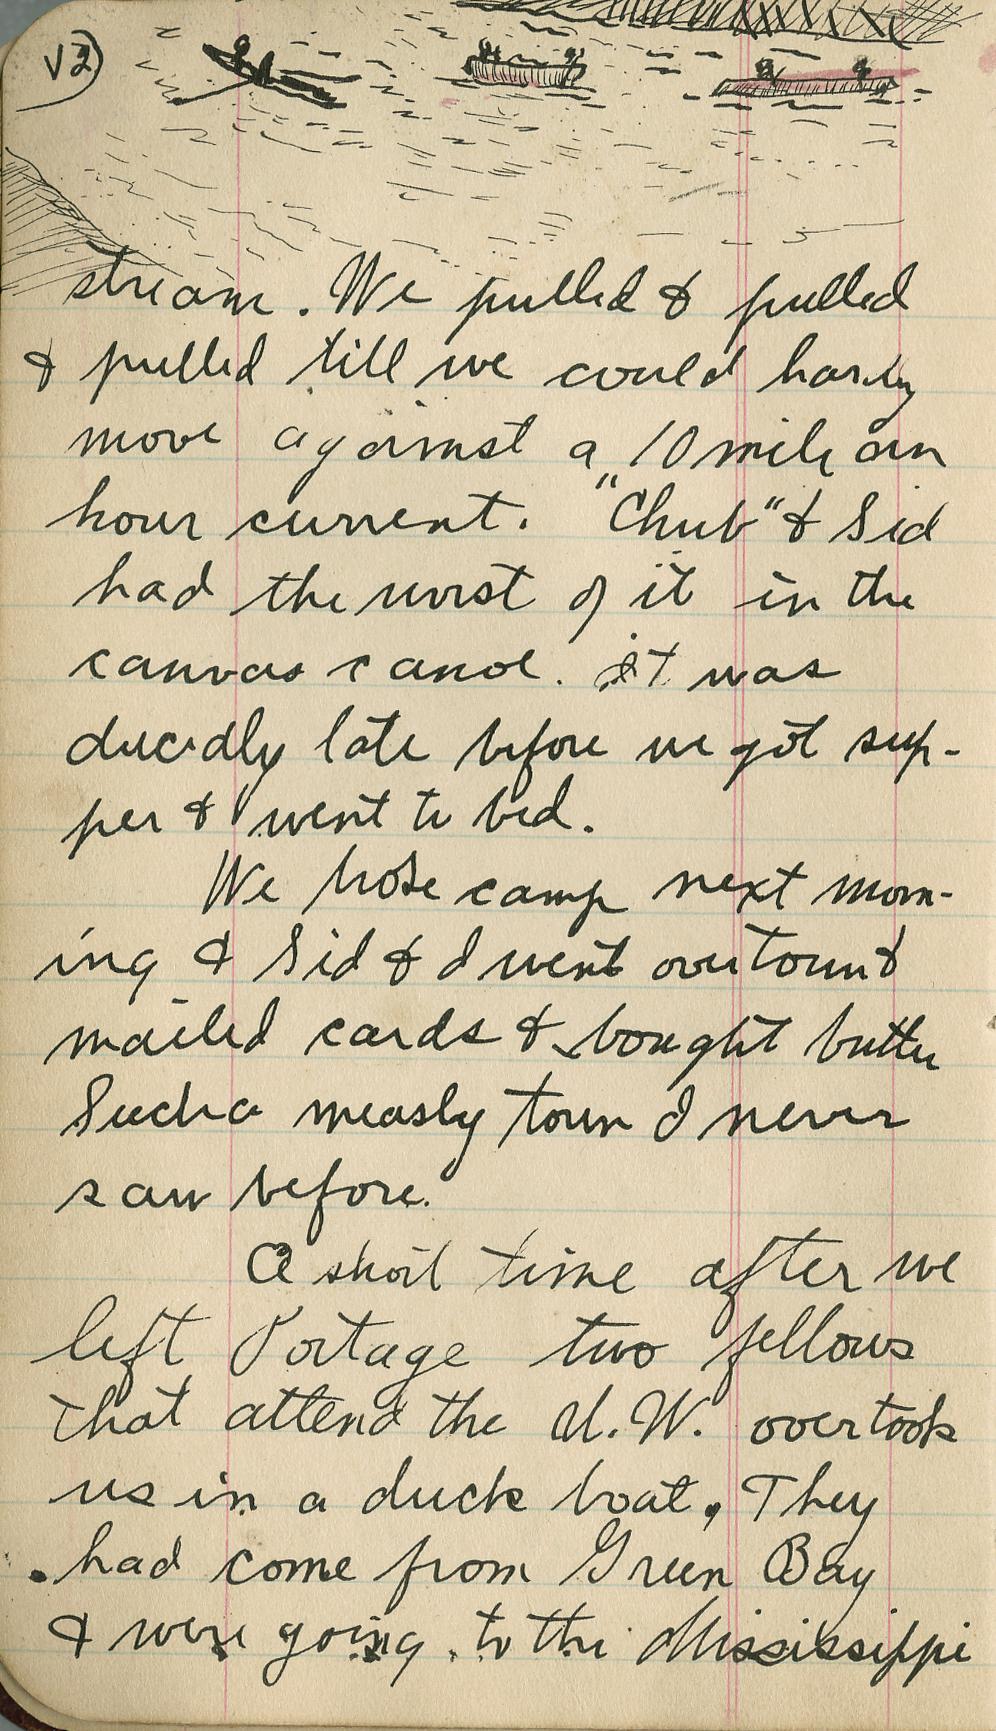 V2)
stream. We pulled & pulled
& pulled till we could hardly
move against a 10 mile an
hour current. "Chub" & Sid
had the worst of it in the
canvas canoe. It was
ducedly late before we got sup-
per & went to bed.
We broke camp next morn-
ing & Sid & I went over town &
mailed cards & bought butter
Such a measly town I never
saw before.
A short time after we
left Portage two fellows
that attend the U. W. overtook
us in a duck boat. They
had come from Green Bay
& were going to the Mississippi